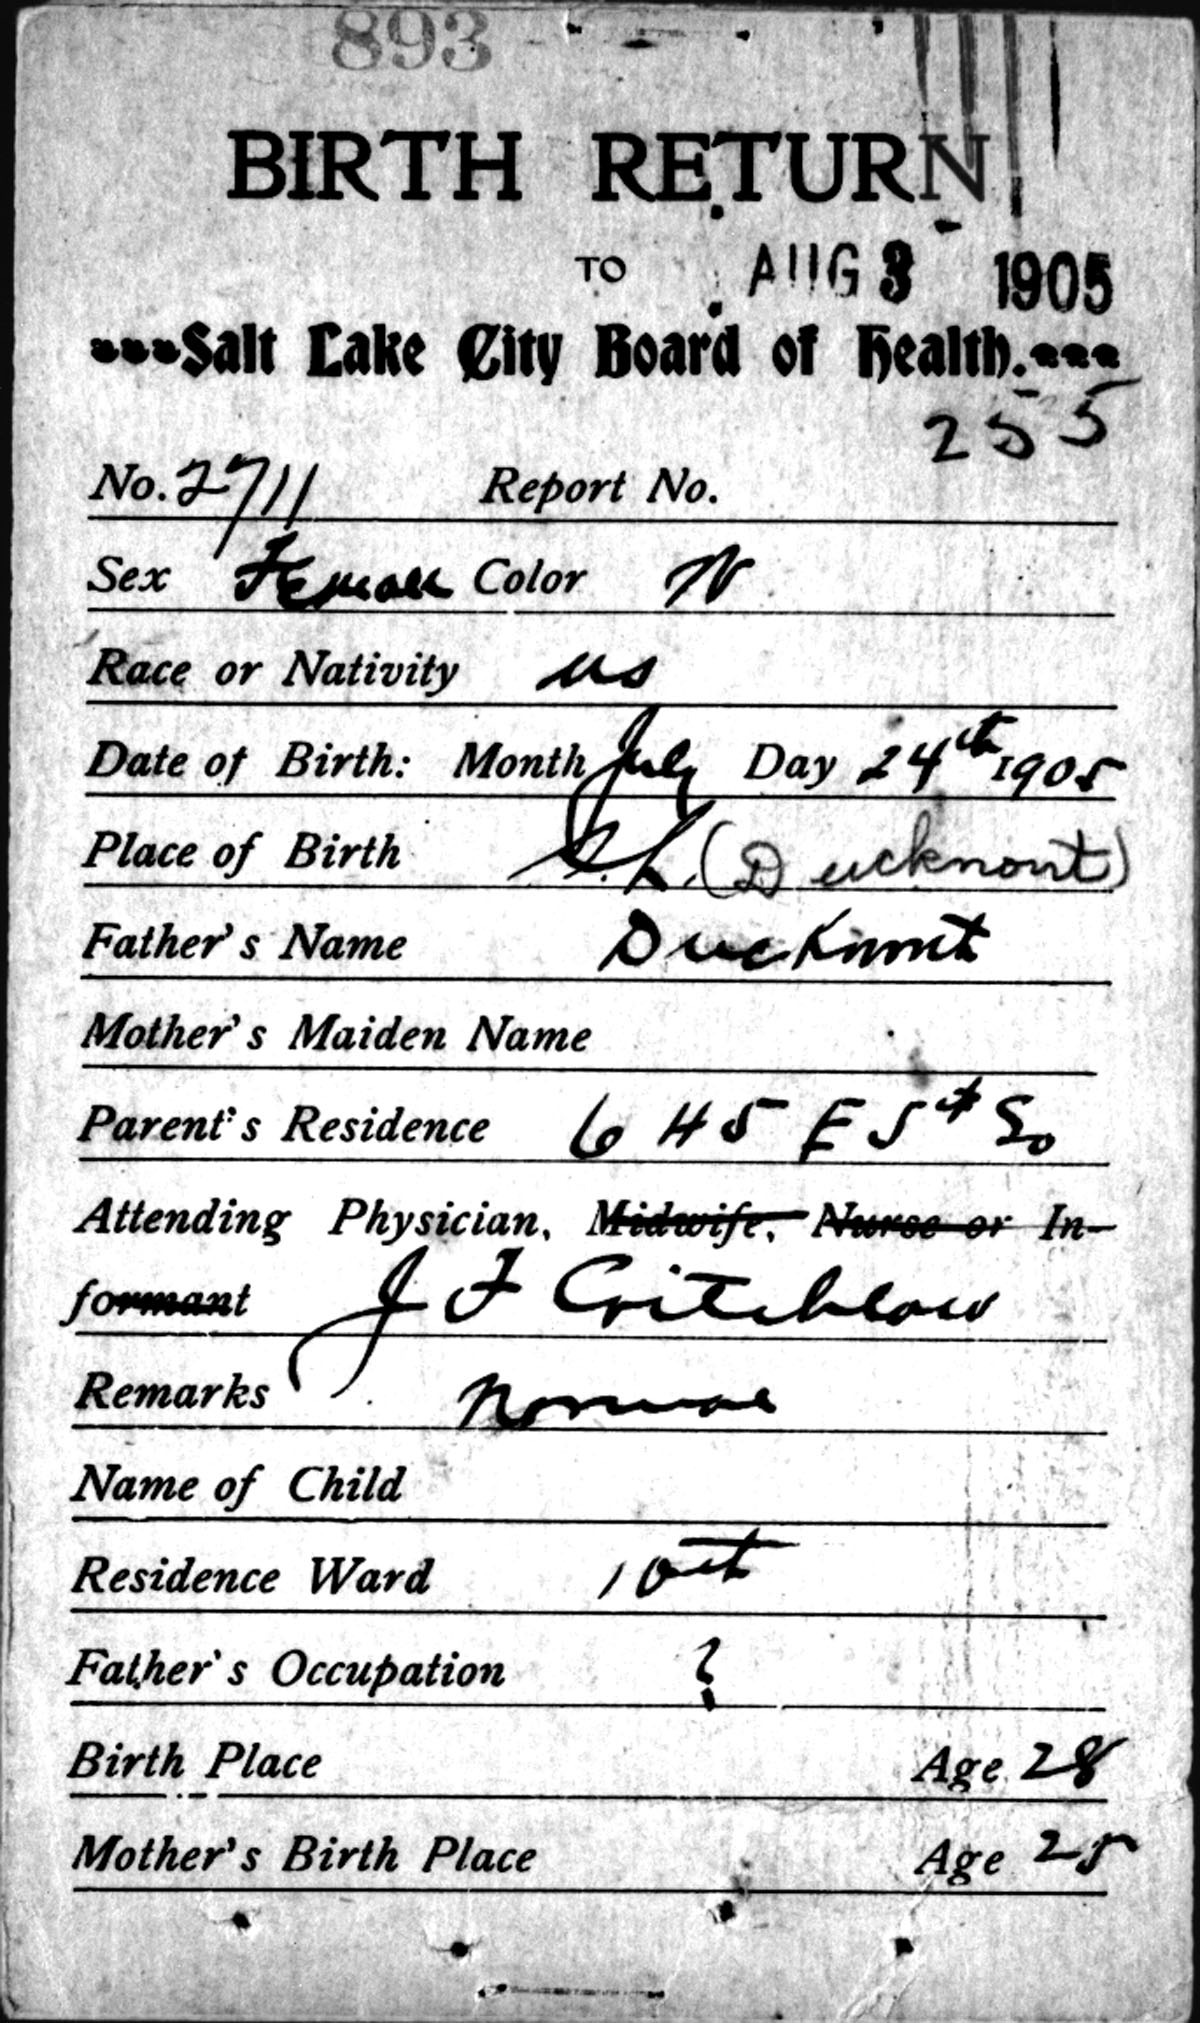 893
BIRTH RETURN
TO AUG 3 1905
Salt Lake City Board of Health.
255
No. 2711 Report No.
Sex Female Color W
Race or Nativity US
Date of Birth: Month July Day 24th 1905
Place of Birth S.L. (Duckmont)
Father's Name Duckmont
Mother's Maiden Name
Parent's Residence 645 E 5th So
Attending Physician, Midwife, Nurse or In-
formant J F Critchlow
Remarks Normal
Name of Child
Residence Ward 10th
Father's Occupation ?
Birth Place Age 28
Mother's Birth Place Age 25